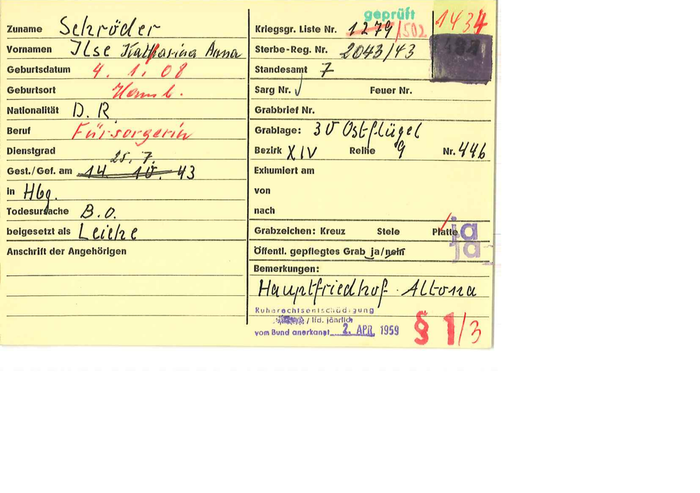 Zuname Schröder
Vornamen Ilse Katharina Anna
Geburtsdatum 4. 1. 08
Geburtsort Hamb.
Nationalität D. R.
Beruf Fürsorgerin
Dienstgrad
25. 7.
Gest./Gef. am 14. 10. 43
in Hbg.
Todesursache B. O.
beigesetzt als Leiche
Anschrift der Angehörigen
geprüft
Kriegsgr. Liste Nr. 1279 /502
1434
Sterbe-Reg. Nr. 2043/43
Standesamt 7
Sarg Nr. Feuer Nr.
Grabbrief Nr.
Grablage: 3 V Ostflügel
Bezirk XIV Reihe 9 Nr. 446
Exhumiert am
von
nach
Grabzeichen: Kreuz Stele Platte ja
Öffentl. gepflegtes Grab ja/nein ja
Bemerkungen:
Hauptfriedhof Altona
Ruherechtsentschädigung
/ lfd. jährlich
vom Bund anerkannt 2. APR. 1959
§ 1/3